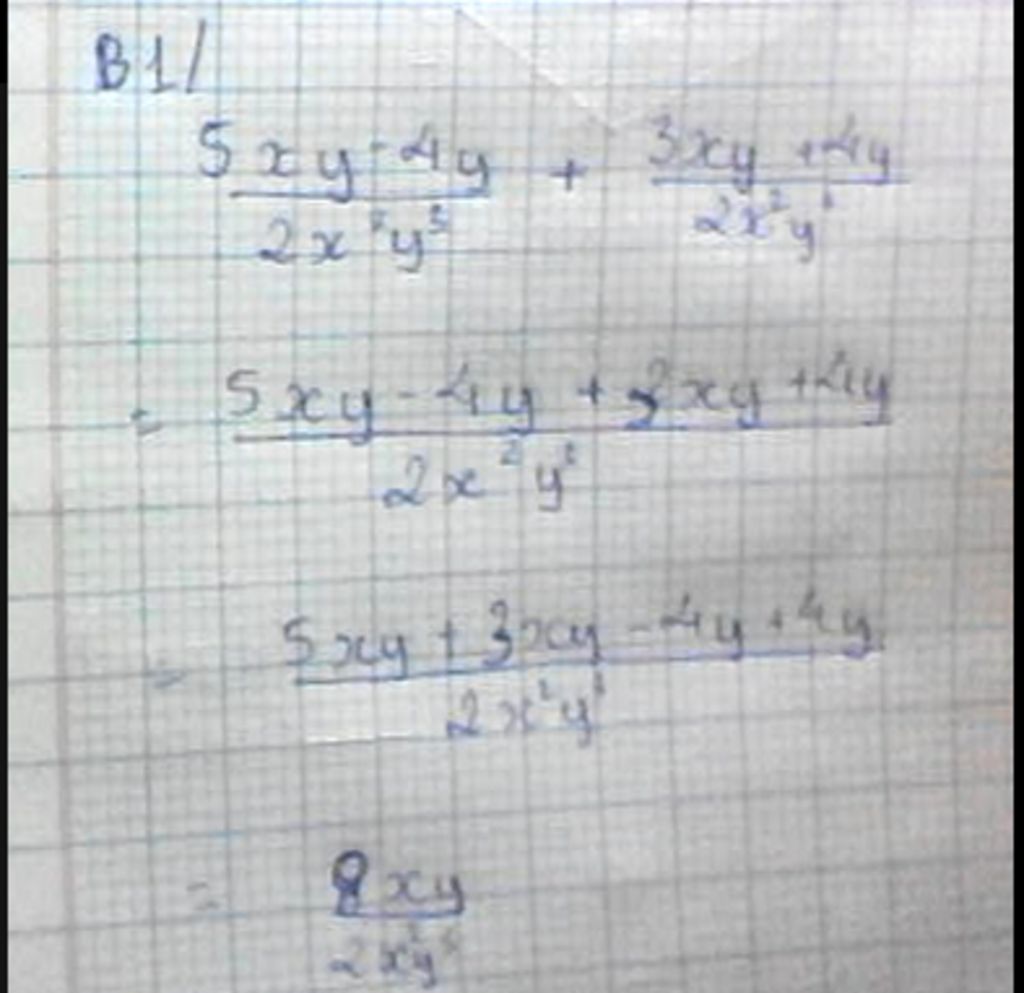 B1/
5xy-4y/2x²y³ + 3xy+4y/2x²y³
= 5xy-4y+3xy+4y/2x²y³
= 5xy+3xy-4y+4y/2x²y³
= 8xy/2x²y³